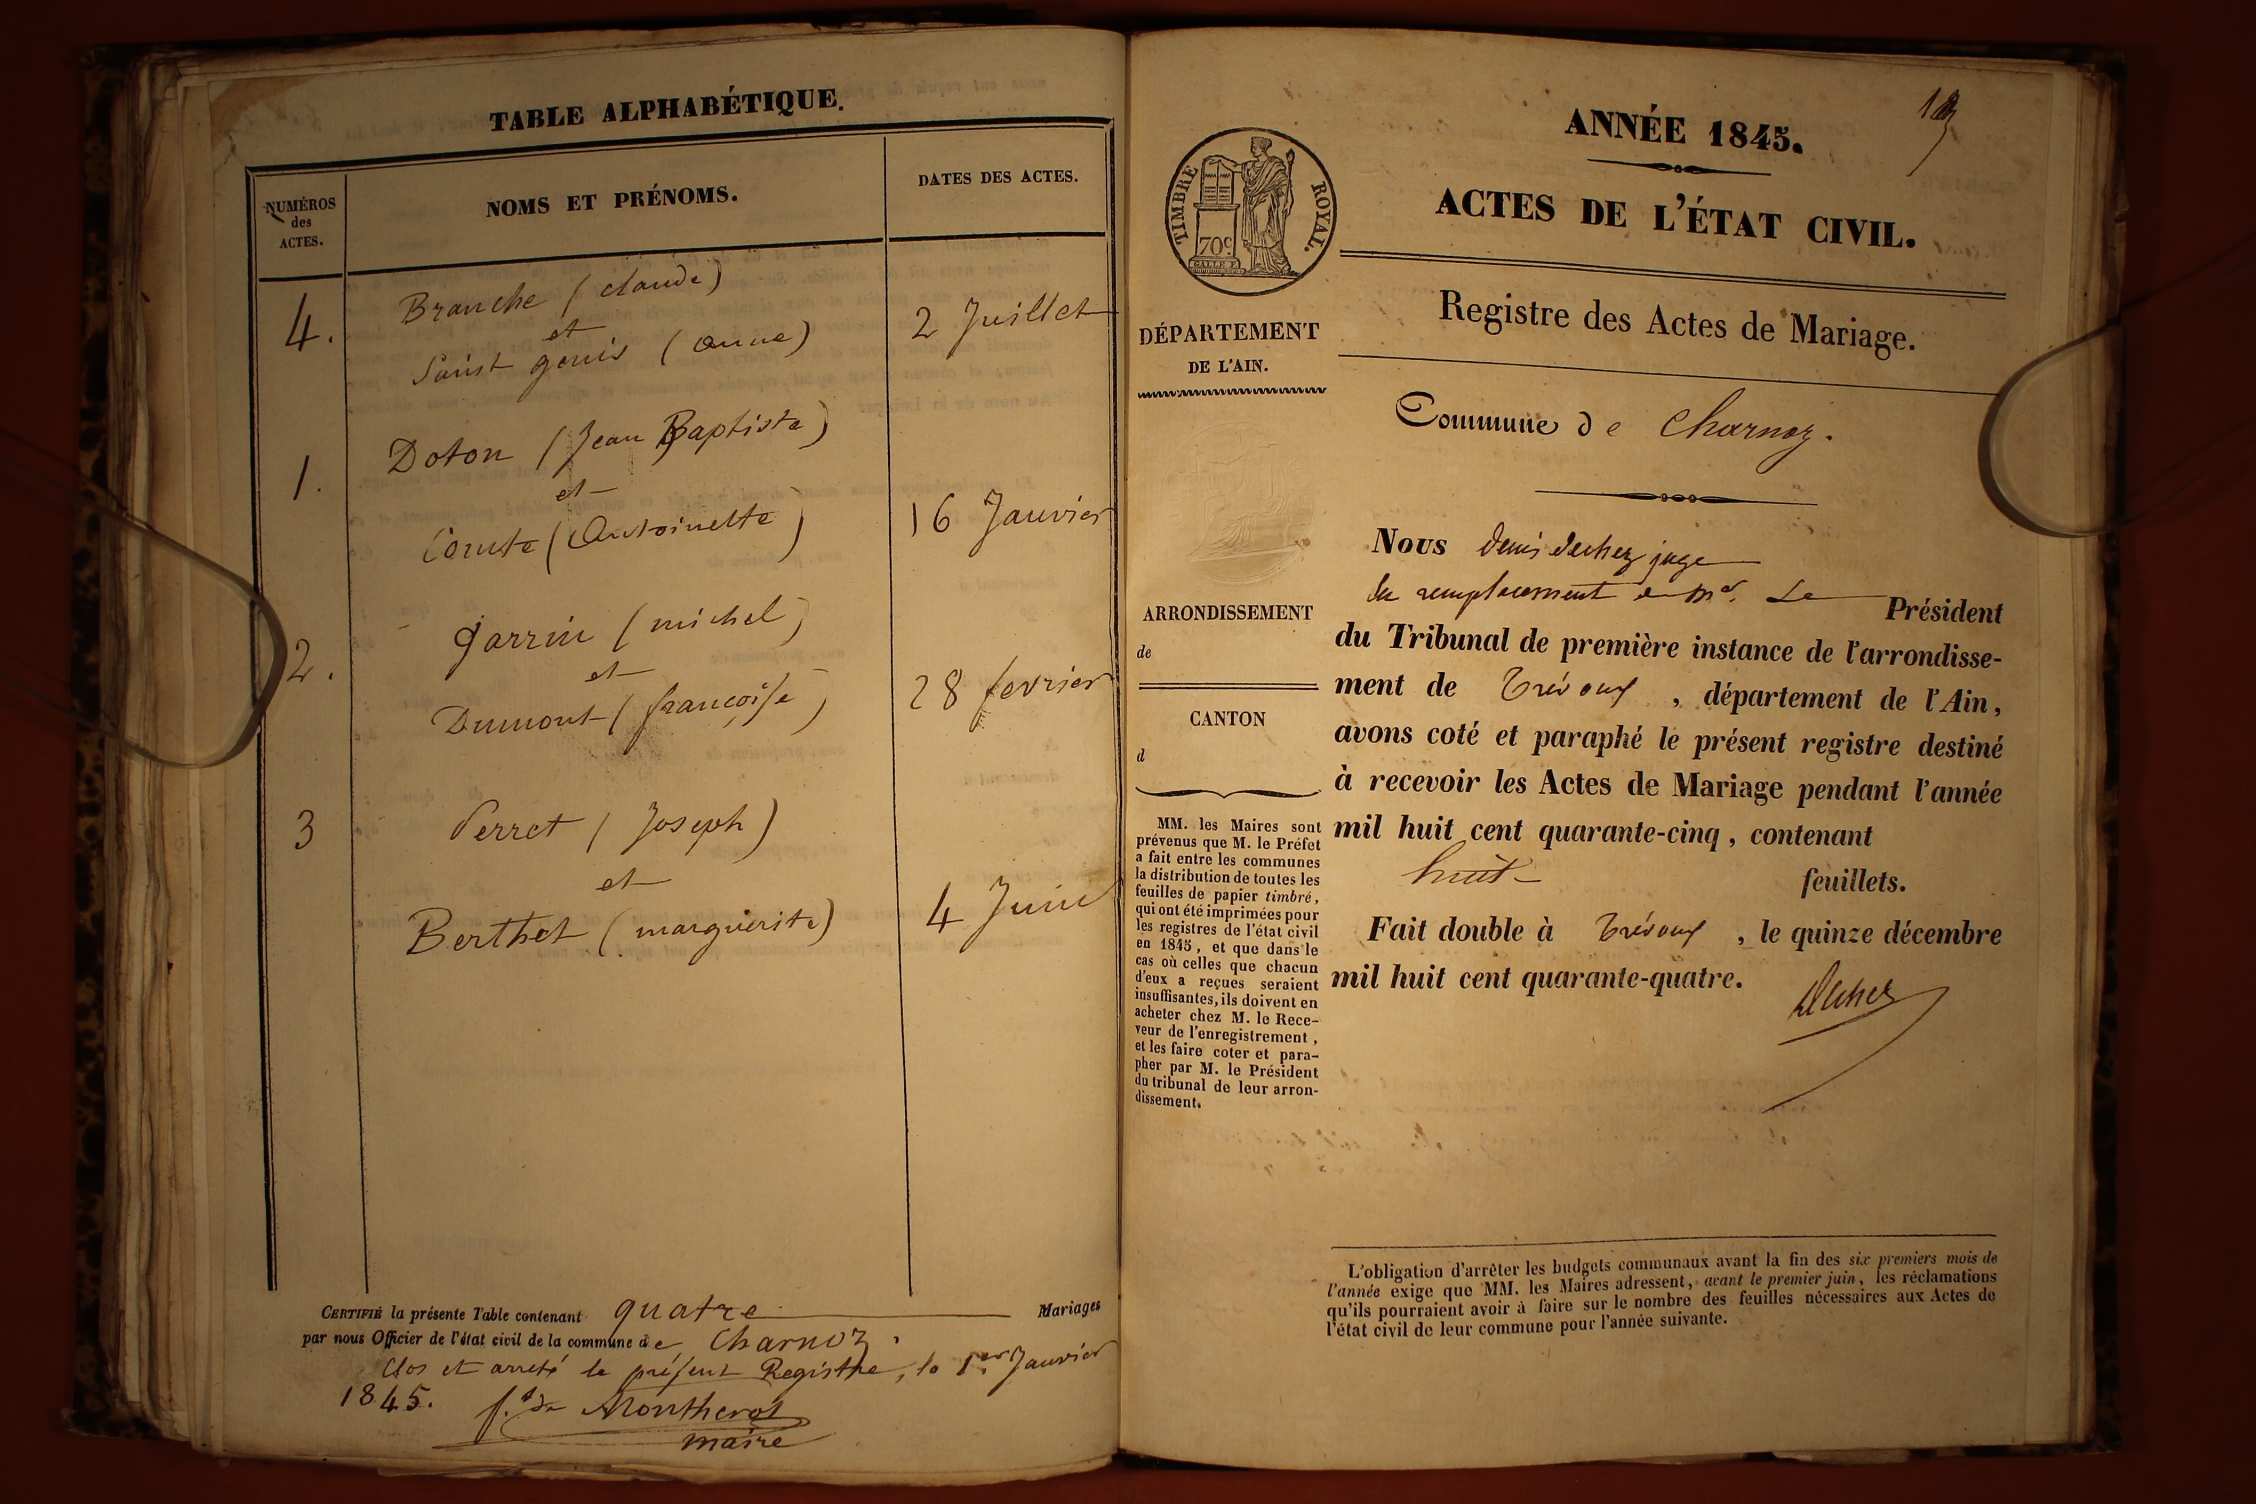 TABLE ALPHABÉTIQUE.
NUMÉROS
des
ACTES.
NOMS ET PRÉNOMS.
DATES DES ACTES.
4.
Branche (claude)
et
Saint genis (anne)
2 Juillet
1.
Doton (Jean Baptiste)
et
Comte (Antoinette)
16 Janvier
2.
garrin (michel)
et
Dumont (françoise)
28 fevrier
3
Perret (Joseph)
et
Berthet (marguerite)
4 Juin
CERTIFIÉ la présente Table contenant quatre Mariages
par nous Officier de l'état civil de la commune de Charnoz.
Clos et arreté le présent Registre, le 1.er Janvier
1845.
f. de Montherot
maire
ANNÉE 1845.
ACTES DE L'ÉTAT CIVIL.
TIMBRE ROYAL.
70c
DÉPARTEMENT
DE L'AIN.
Registre des Actes de Mariage.
Commune de Charnoz.
ARRONDISSEMENT
de
CANTON
d
MM. les Maires sont
prévenus que M. le Préfet
a fait entre les communes
la distribution de toutes les
feuilles de papier timbré,
qui ont été imprimées pour
les registres de l'état civil
en 1845, et que dans le
cas où celles que chacun
d'eux a reçues seraient
insuffisantes, ils doivent en
acheter chez M. le Rece-
veur de l'enregistrement,
et les faire coter et para-
pher par M. le Président
du tribunal de leur arron-
dissement.
Nous Denis Dechez juge
en remplacement de Mr. Le Président
du Tribunal de première instance de l'arrondisse-
ment de Trévoux, département de l'Ain,
avons coté et paraphé le présent registre destiné
à recevoir les Actes de Mariage pendant l'année
mil huit cent quarante-cinq, contenant
huit feuillets.
Fait double à Trévoux, le quinze décembre
mil huit cent quarante-quatre.
Dechez
L'obligation d'arrêter les budgets communaux avant la fin des six premiers mois de
l'année exige que MM. les Maires adressent, avant le premier juin, les réclamations
qu'ils pourraient avoir à faire sur le nombre des feuilles nécessaires aux Actes de
l'état civil de leur commune pour l'année suivante.